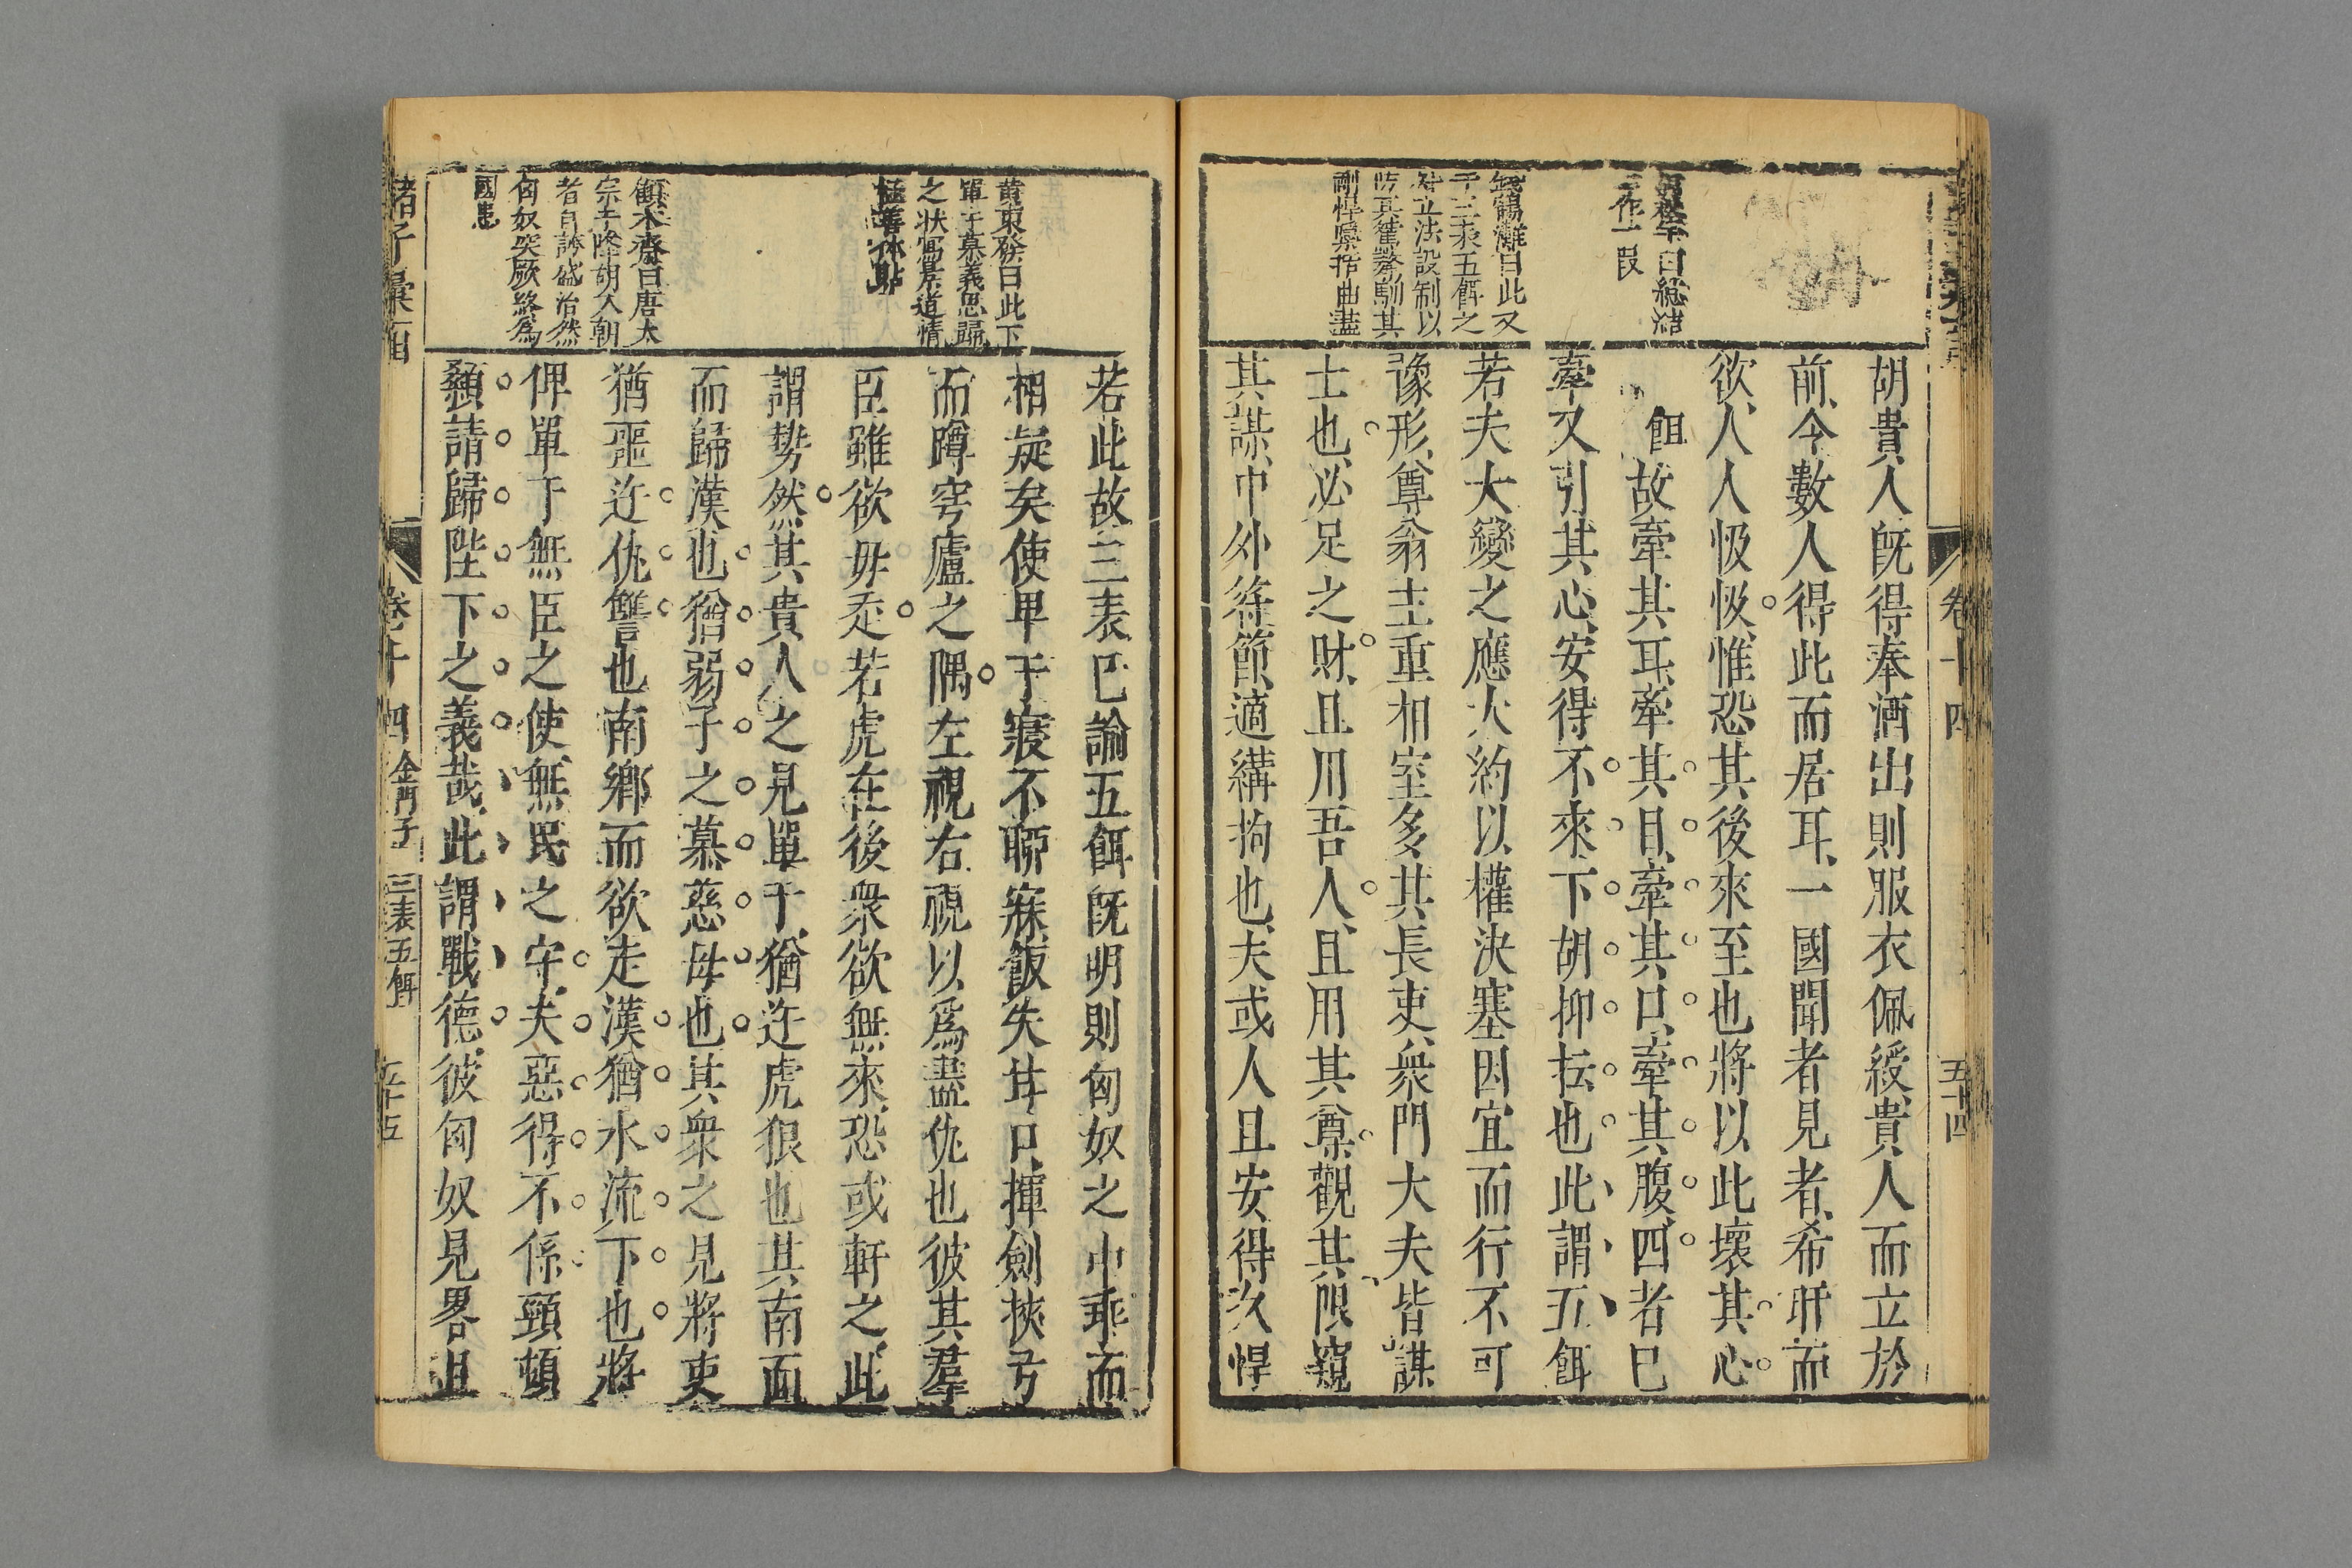 胡貴人既得奉酒出則服衣佩綬貴人而立於
前今數人得此而居耳一國聞者見者希盱而
欲人人忣忣惟恐其後來至也將以此壞其心
一餌故牽其耳牽其目牽其口牽其腹四者已
牽又引其心安得不來下胡抑抎也此謂五餌
若夫大變之應大約以權決塞因宜而行不可
豫形尊翁主重相室多其長吏衆門大夫皆謀
士也必足之財且用吾人且用其尊觀其限窺
其謀中外符節適構拘也夫或人且安得久悍
曰總結
二作一段
鶴灘曰此又
于三表五餌之
外立法設制以
防其舊驁馴其
剛悍檃括曲盡
卷十四
五十四
若此故三表已諭五餌既明則匈奴之中乖而
相疑矣使單于寢不聊寐飯失甘口揮劍挾弓
而蹲穹廬之隅左視右視以爲盡仇也彼其羣
臣雖欲毋走若虎在後衆欲無來恐或軒之此
謂勢然其貴人之見單于猶迕虎狼也其南面
而歸漢也猶弱子之慕慈母也其衆之見將吏
猶噩迕仇讐也南鄉而欲走漢猶水流下也將
俾單于無臣之使無民之守夫惡得不係頸頓
顙請歸陛下之義哉此謂戰德彼匈奴見畧且
黃東發曰此下
單于慕義思歸
之狀寫景道情
極善休點
顧木齋曰唐太
宗辛隆胡人朝
者自誇盛治然
匈奴突厥終爲
國患
諸子彙函
卷十四 金門子 三表五餌 五十五